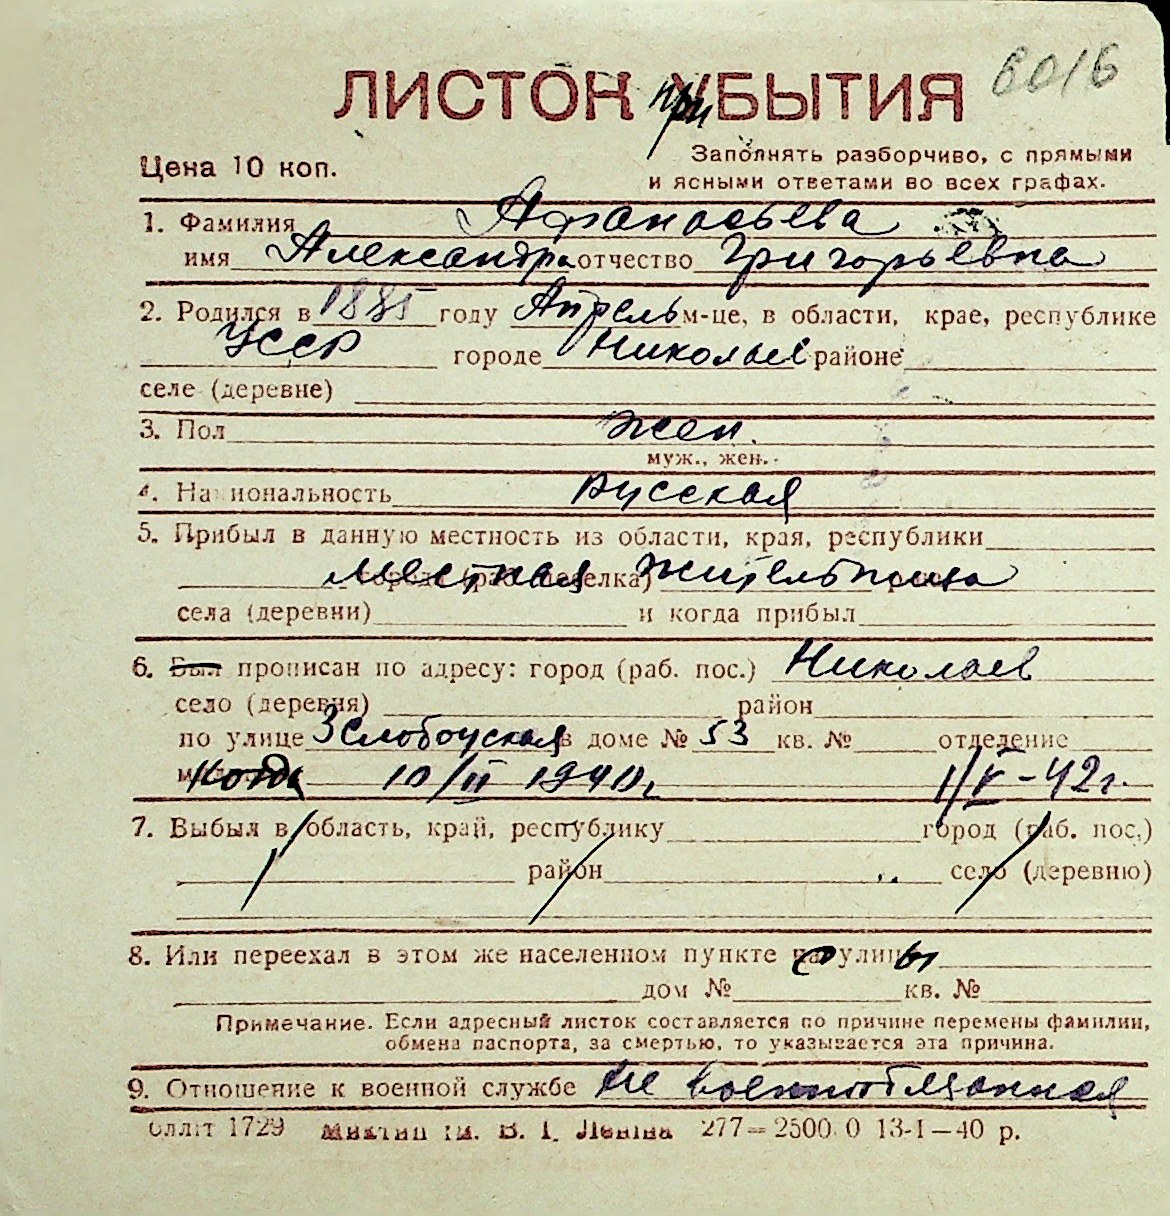 6016
ЛИСТОК прибытия
Цена 10 коп.
Заполнять разборчиво, с прямыми
и ясными ответами во всех графах.
1. Фамилия Афанасьева
имя Александра отчество Григорьевна
2. Родился в 1885 году Апрель м-це, в области, крае, республике
УССР городе Николаев районе
селе (деревне)
3. Пол жен.
муж., жен.
4. Национальность русская
5. Прибыл в данную местность из области, края, республики
Местная жительница
села (деревни) и когда прибыл
6. Был прописан по адресу: город (раб. пос.) Николаев
село (деревня) район
по улице 3 Слободская в доме № 53 кв. № отделение
Когда 10/II 1940г. 1/V-42г.
7. Выбыл в область, край, республику город (раб. пос.)
район село (деревню)
8. Или переехал в этом же населенном пункте с улицы
дом № кв. №
Примечание. Если адресный листок составляется по причине перемены фамилии,
обмена паспорта, за смертью, то указывается эта причина.
9. Отношение к военной службе не военнообязанная
1729 ім. В. І. Леніна 277—2500.0 13-I—40 р.